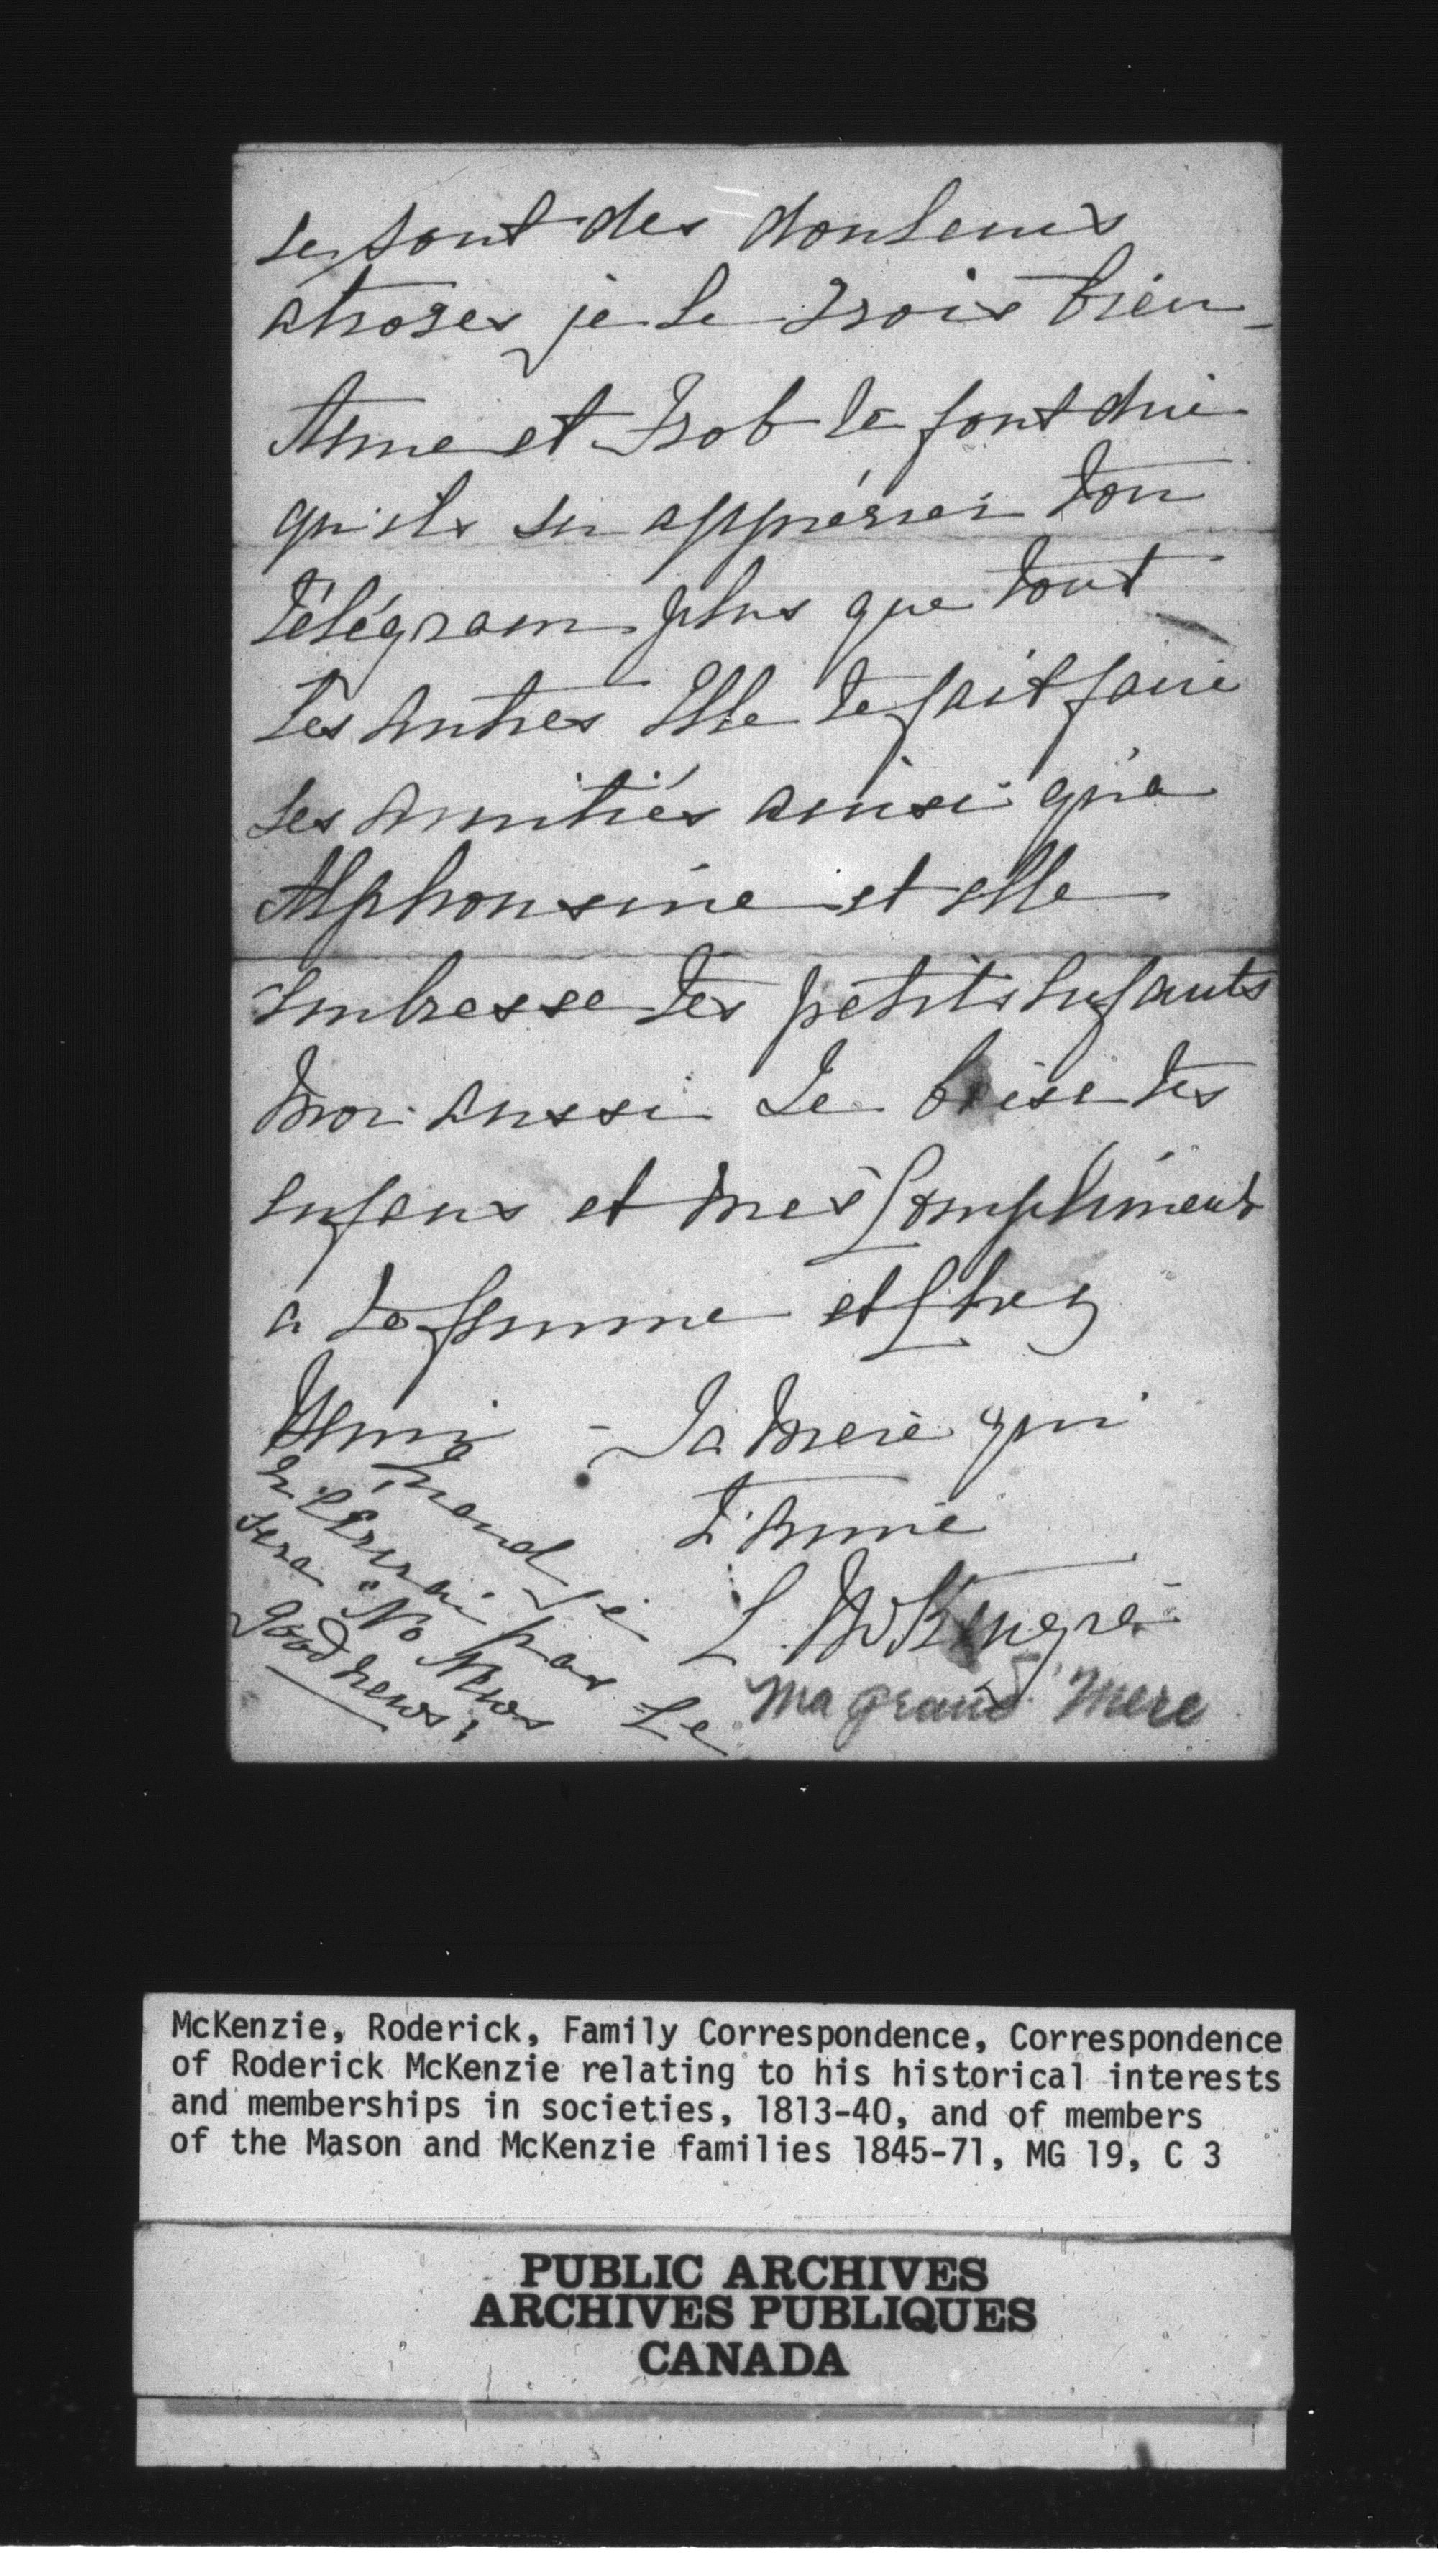 se sont des douleurs
atroses je le crois bien
Anne et Bob te font dire
qu'ils on apprécier ton
télégram plus que tout
les autres Elle te fait faire
ses amitiés ainsi qu'a
Alphonsine et elle
embrasse tes petits enfants
Moi aussi Je baise tes
enfans et mes Compliment
a ta femme et Chez
Henri - Ta mere qui
t'aime
L McKenzie
Ma grand' Mere
Quand je
n'écrirai pas Le
sera "No News
Good news"
McKenzie, Roderick, Family Correspondence, Correspondence
of Roderick McKenzie relating to his historical interests
and memberships in societies, 1813-40, and of members
of the Mason and McKenzie families 1845-71, MG 19, C 3
PUBLIC ARCHIVES
ARCHIVES PUBLIQUES
CANADA